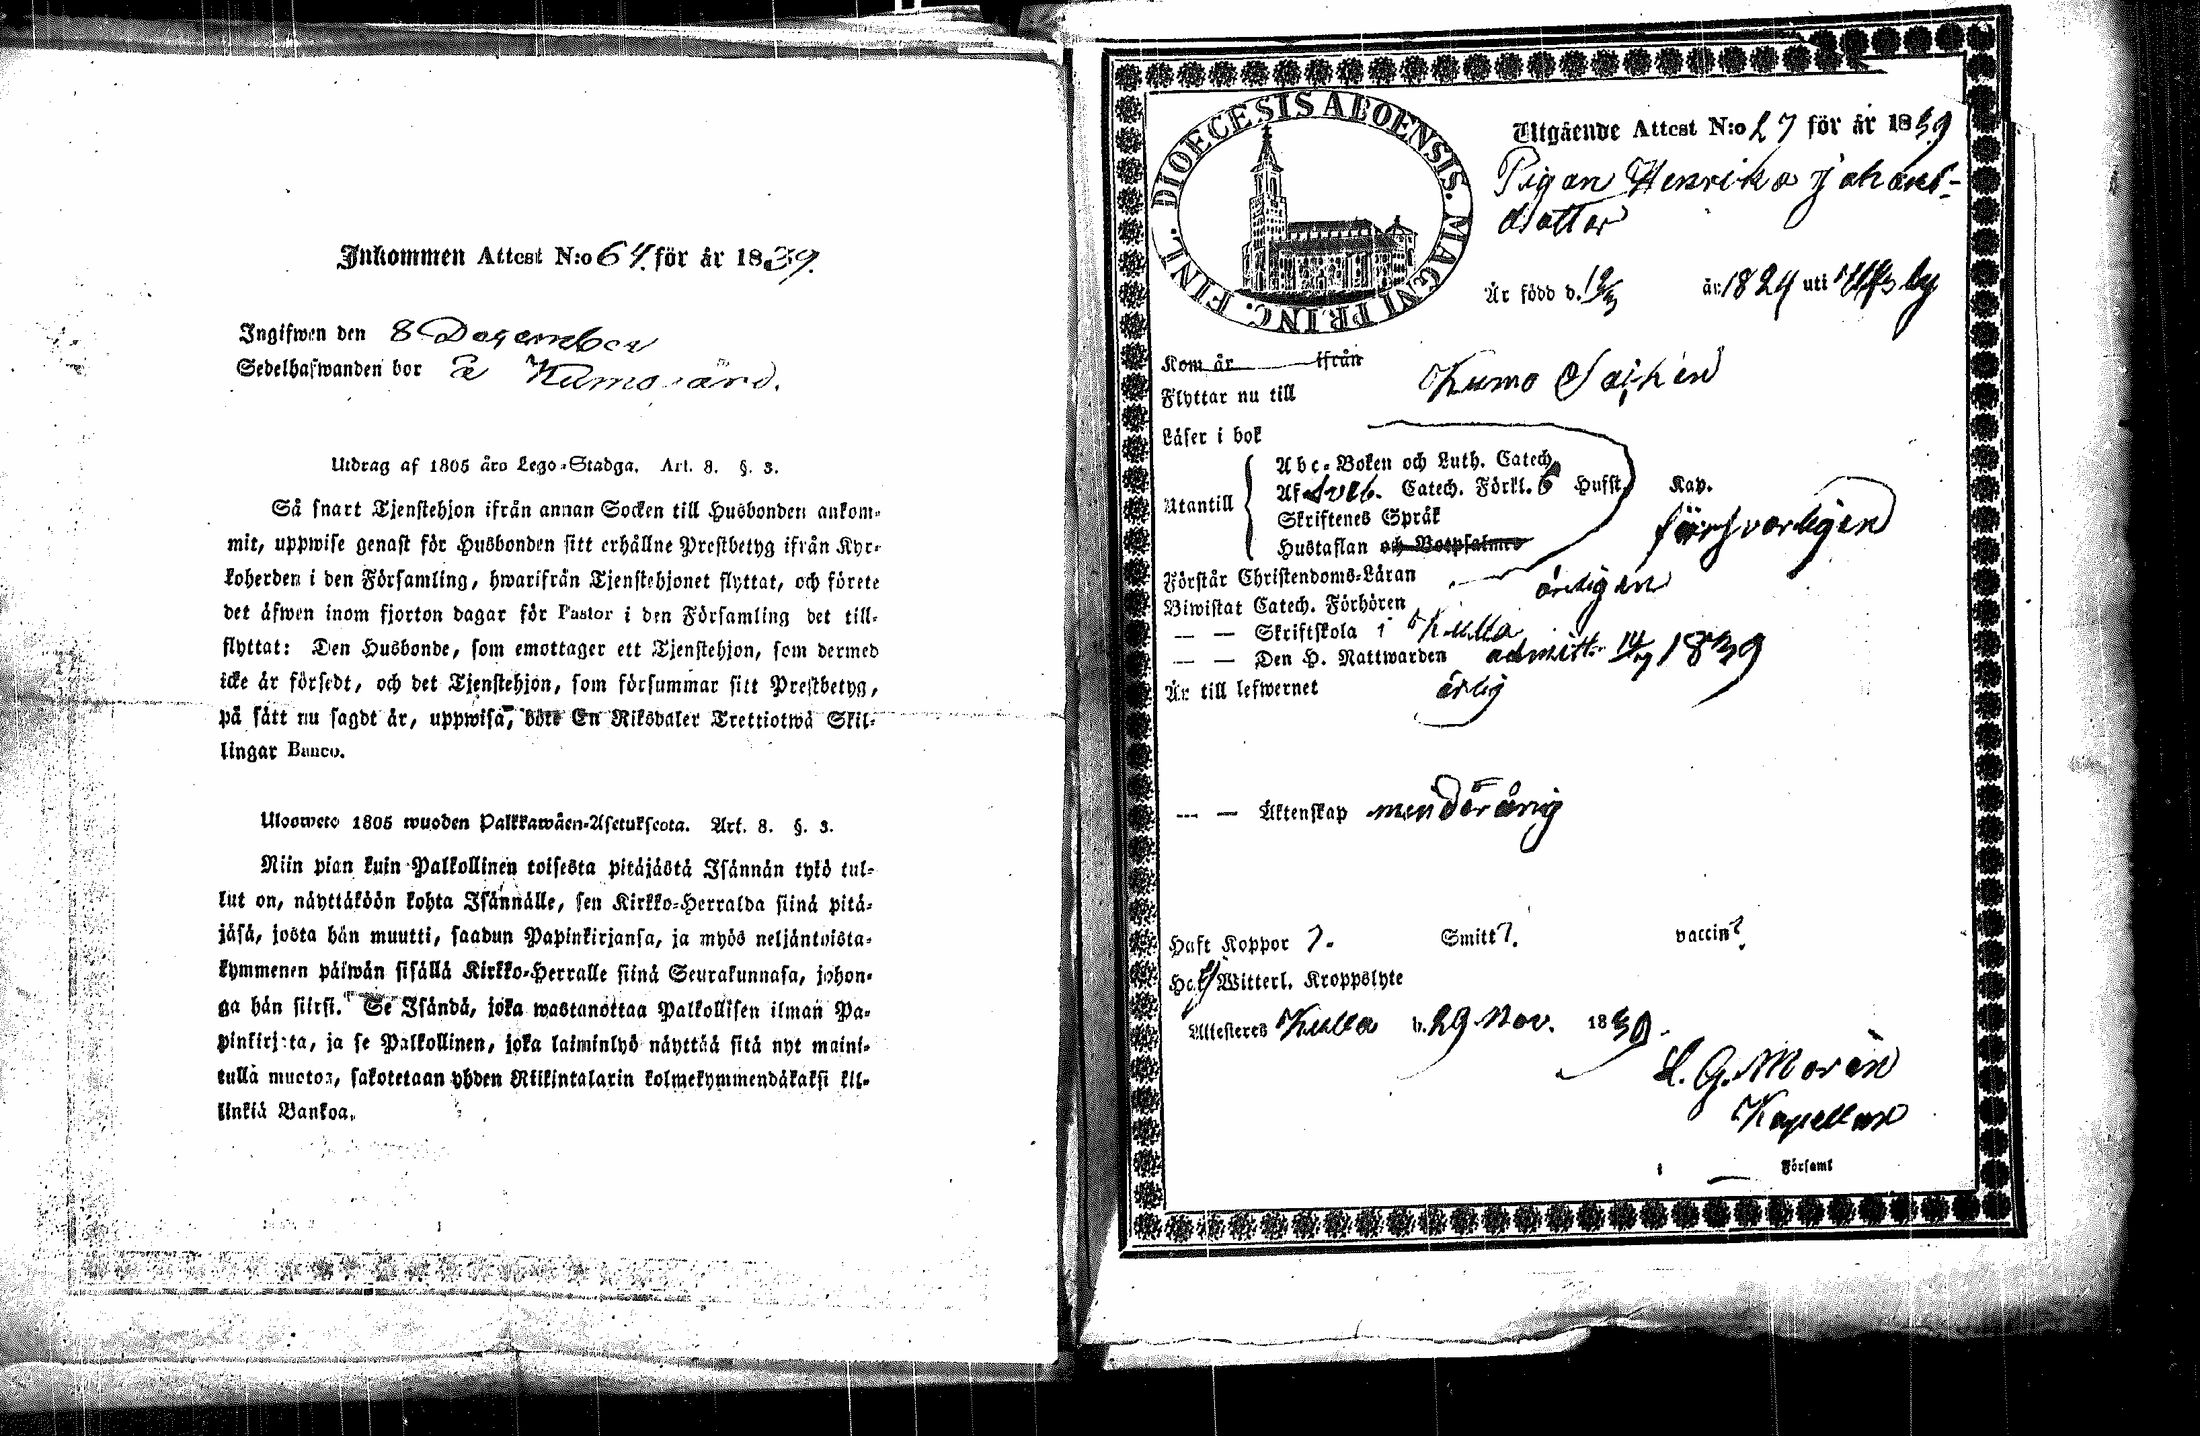 Inkommen Attest N:o 64. för år 1839.
Ingifwen den 8 December
Sedelhafwanden bor å Kumogård.
Utdrag af 1805 års Lego-Stadga. Art. 8. §. 3.
Så snart Tjenstehjon ifrån annan Socken till Husbonden ankom-
mit, uppwise genast för Husbonden sitt erhållne Prestbetyg ifrån Kyr-
koherden i den Församling, hwarifrån Tjenstehjonet flyttat, och förete
det äfwen inom fjorton dagar för Pastor i den Församling det till-
flyttat: Den Husbonde, som emottager ett Tjenstehjon, som dermed
icke är försedt, och det Tjenstehjon, som försummar sitt Prestbetyg,
på sätt nu sagdt är, uppwisa, böte En Riksdaler Trettiotwå Skil-
lingar Banco.
Ulosweto 1805 wuoden Palkkawäen-Asetuksesta. Art. 8. §. 3.
Niin pian kuin Palkollinen toisesta pitäjästä Isännän tykö tul-
lut on, näyttäköön kohta Isännälle, sen Kirkko-Herralda siinä pitä-
jäsä, josta hän muutti, saadun Papinkirjansa, ja myös neljäntoista-
kymmenen päiwän sisällä Kirkko-Herralle siinä Seurakunnasa, johon-
ga hän siirsi. Se Isändä, joka wastanottaa Palkollisen ilman Pa-
pinkirjata, ja se Palkollinen, joka laiminlyö näyttää sitä nyt maini-
tulla muotoa, sakotetaan yhden Riikintalarin kolmekymmendäkaksi kil-
linkiä Bankoa.
DIOECESIS ABOENSIS. MAGNI PRINC. FINL.
Utgående Attest N:o 27 för år 1839
Pigan Henrika Johans-
dotter
Är född d. år 1824 uti by
Kom år ifrån
Flyttar nu till Kumo Socken
Läser i bok
Abc-Boken och Luth. Catech.
Utantill Af Sveb. Catech. Förkl. 6 Hufst. Kap.
Skriftenes Språk försvarligen
Hustaflan och Botpsalmer
Förstår Christendoms-Läran
Biwistat Catech. Förhören årligen
— — Skriftskola i Kulla
— — Den H. Nattwarden admitt. 14/7 1839
Är till lefwernet ärlig
— — Äktenskap minderårig
Haft Koppor ?. Smitt ?. vaccin ?.
Har ej Witterl. Kroppslyte
Attesteres Kulla d. 29 Nov. 1839.
L. G. Morén
Kapellan
i — Församl